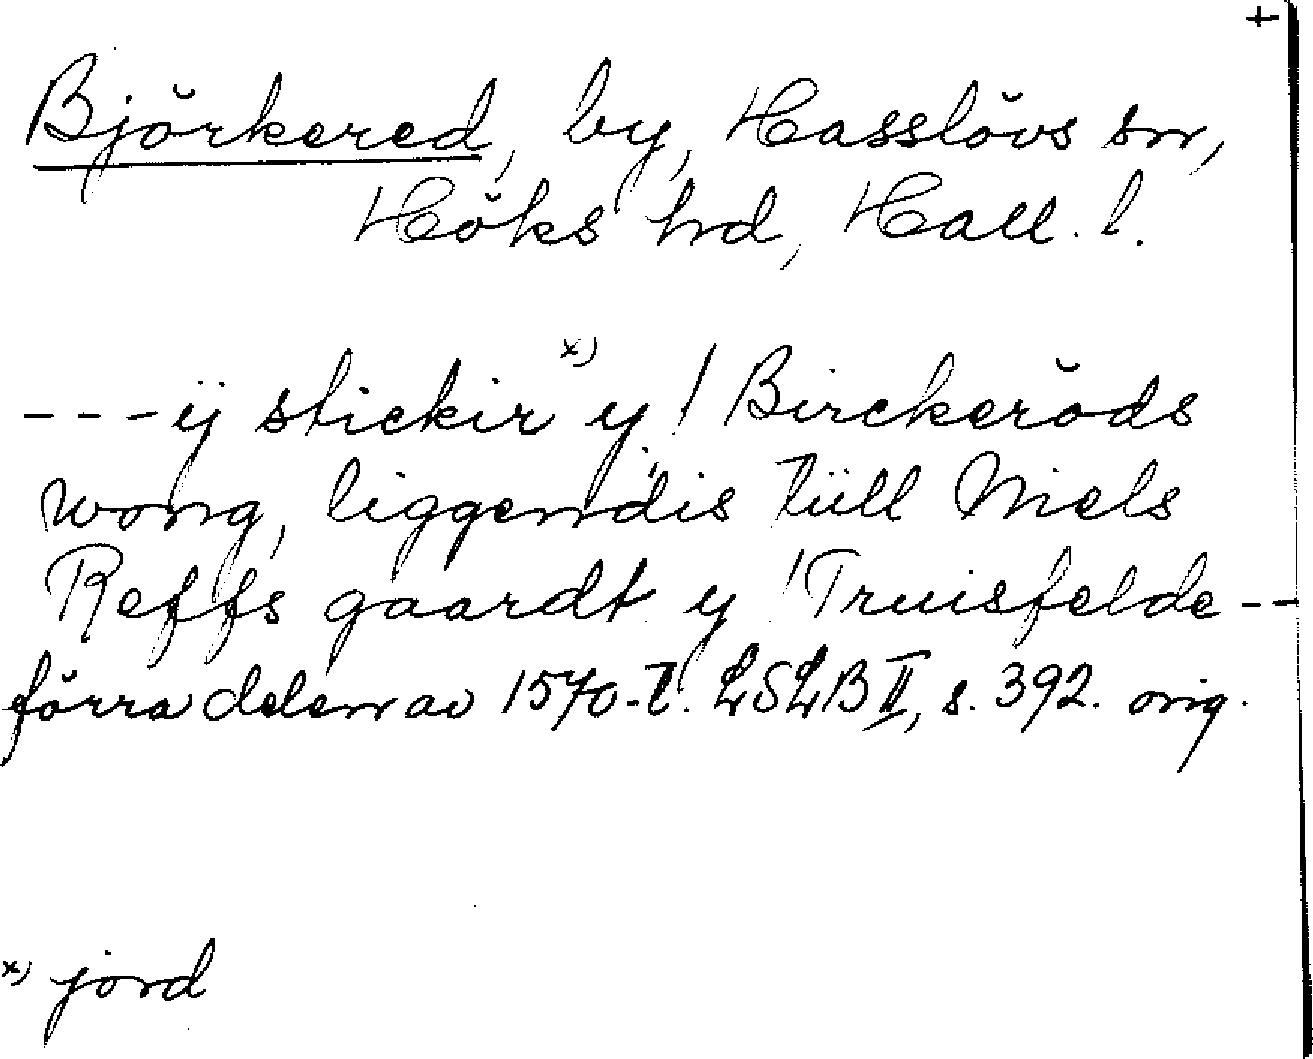 +
Björkered, by, Hasslövs sn,
Höks hd, Hall. l.
---ÿ stickir x) y ! Birckeröds
wong, liggendis tüll Niels
Reffs gaardt y ! Truisfelde --
förra delen av 1570-t. LSLB II, s. 392. orig.
x) jord